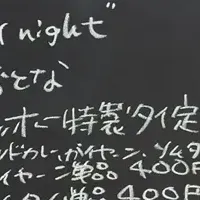 r night"
おとな
ッホー特製タイ定
ッドカレー,ガイヤーン,ソムタ
イヤーン単品 400円
400円